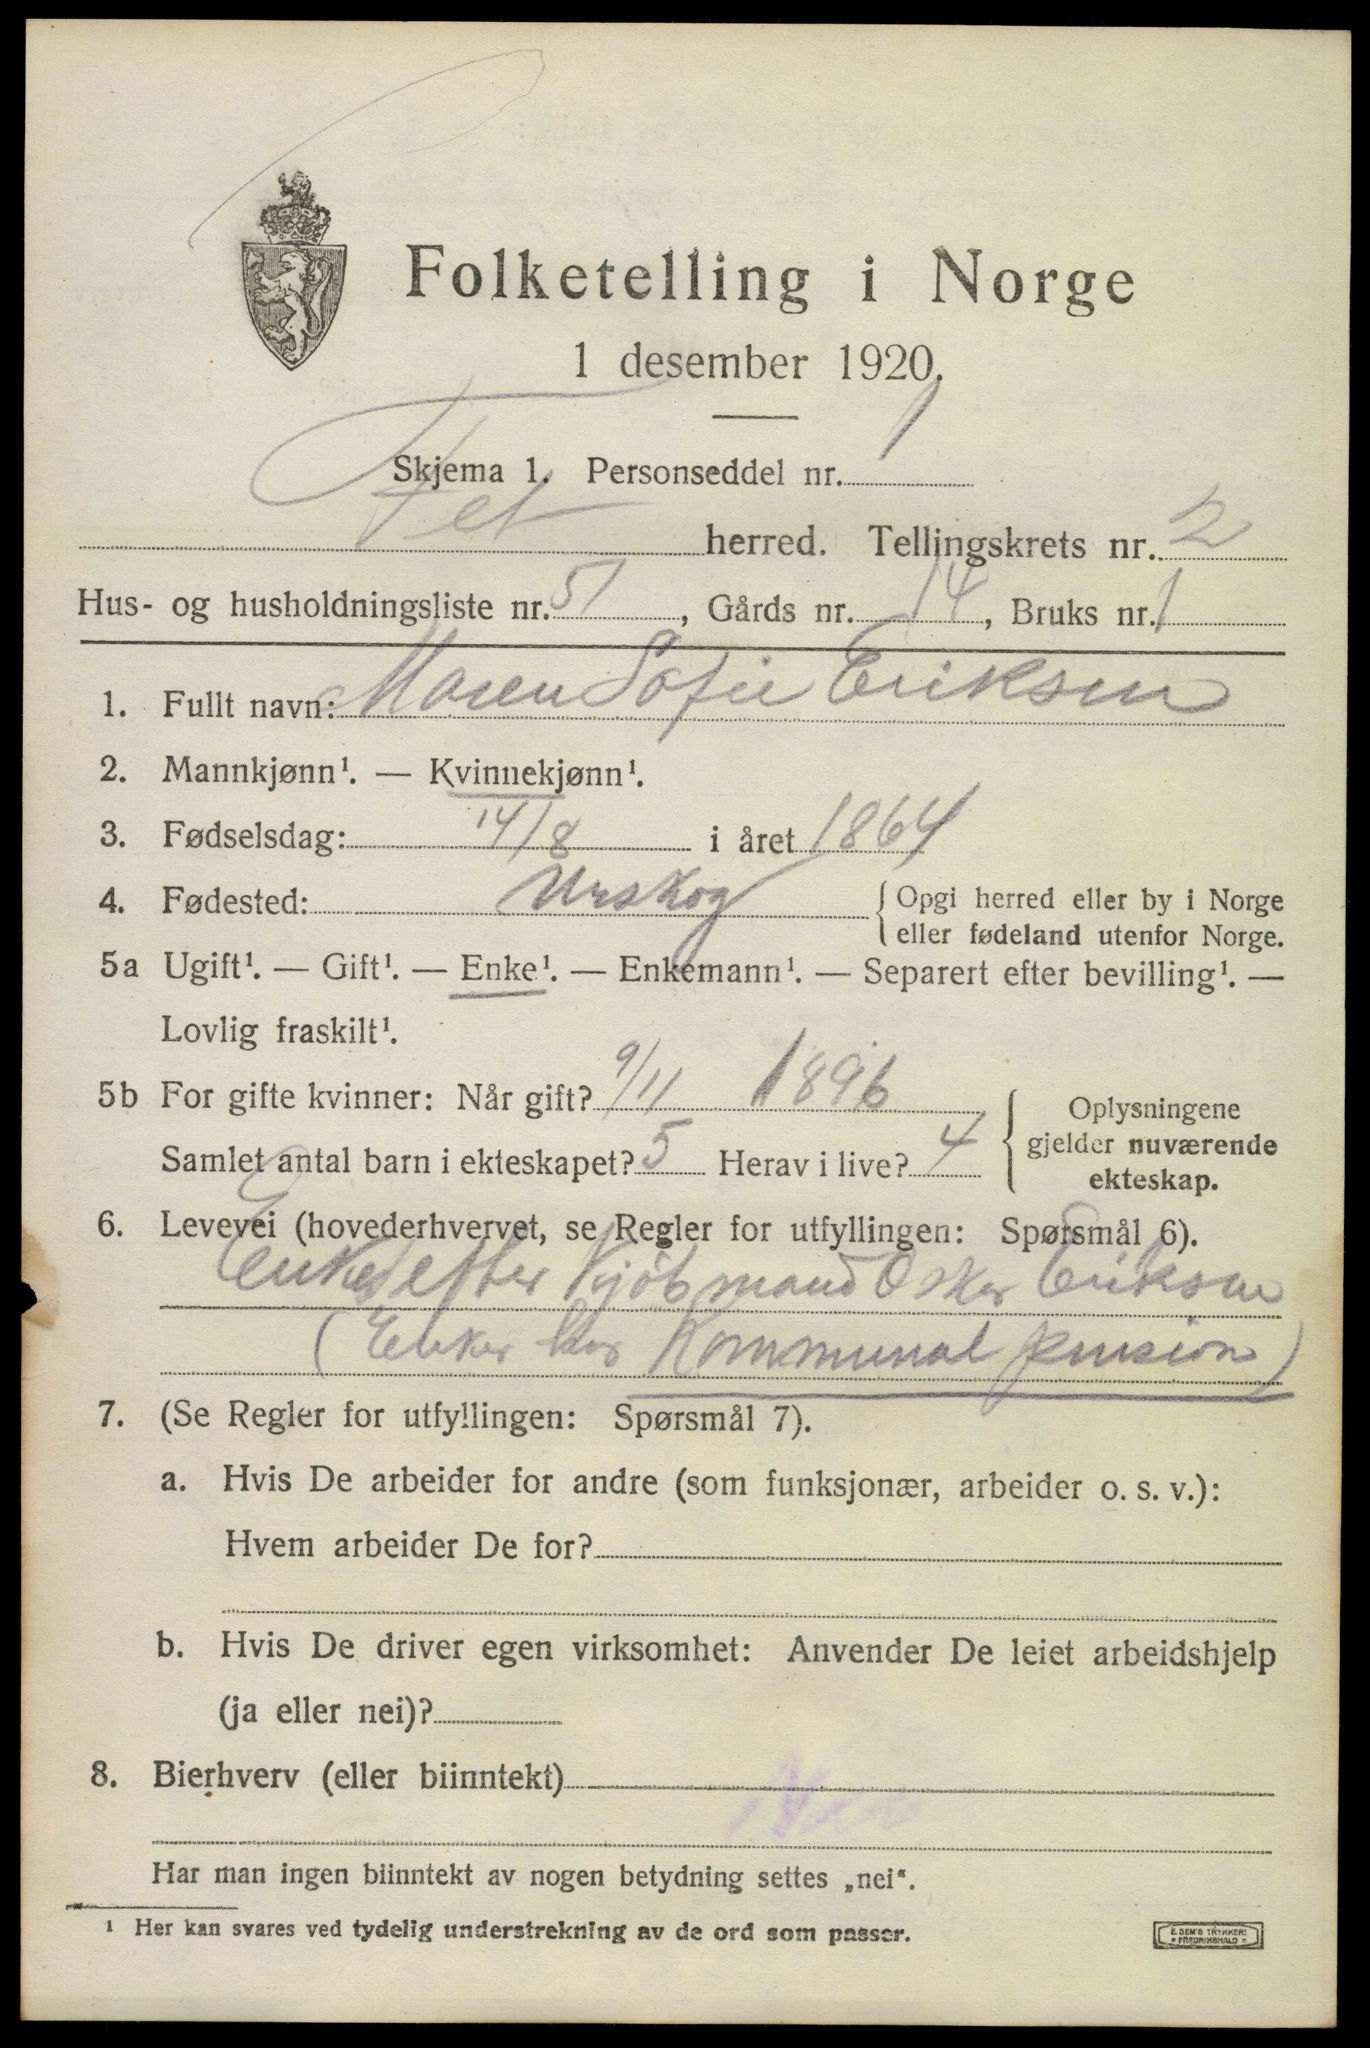 Folketelling i Norge
1 desember 1920.
Skjema 1. Personseddel nr. 1
Fet herred. Tellingskrets nr. 2
Hus- og husholdningsliste nr. 51, Gårds nr. 14, Bruks nr. 1
1. Fullt navn: Maren Sofie Eriksen
2. Mannkjønn¹. — Kvinnekjønn¹.
3. Fødselsdag: 14/8 i året 1864
4. Fødested: Urskog { Opgi herred eller by i Norge
eller fødeland utenfor Norge.
5a Ugift¹. — Gift¹. — Enke¹. — Enkemann¹. — Separert efter bevilling¹. —
Lovlig fraskilt¹.
5b For gifte kvinner: Når gift? 9/11 1896
Samlet antal barn i ekteskapet? 5 Herav i live? 4
{ Oplysningene
gjelder nuværende
ekteskap.
6. Levevei (hovederhvervet, se Regler for utfyllingen: Spørsmål 6).
Enke efter Kjöbmand Oskar Eriksen
(Enker har Kommunal pension)
7. (Se Regler for utfyllingen: Spørsmål 7).
a. Hvis De arbeider for andre (som funksjonær, arbeider o. s. v.):
Hvem arbeider De for?
b. Hvis De driver egen virksomhet: Anvender De leiet arbeidshjelp
(ja eller nei)?
8. Bierhverv (eller biinntekt)
Har man ingen biinntekt av nogen betydning settes „nei“.
¹ Her kan svares ved tydelig understrekning av de ord som passer.
E. SEM'S TRYKKERI
FREDRIKSHALD